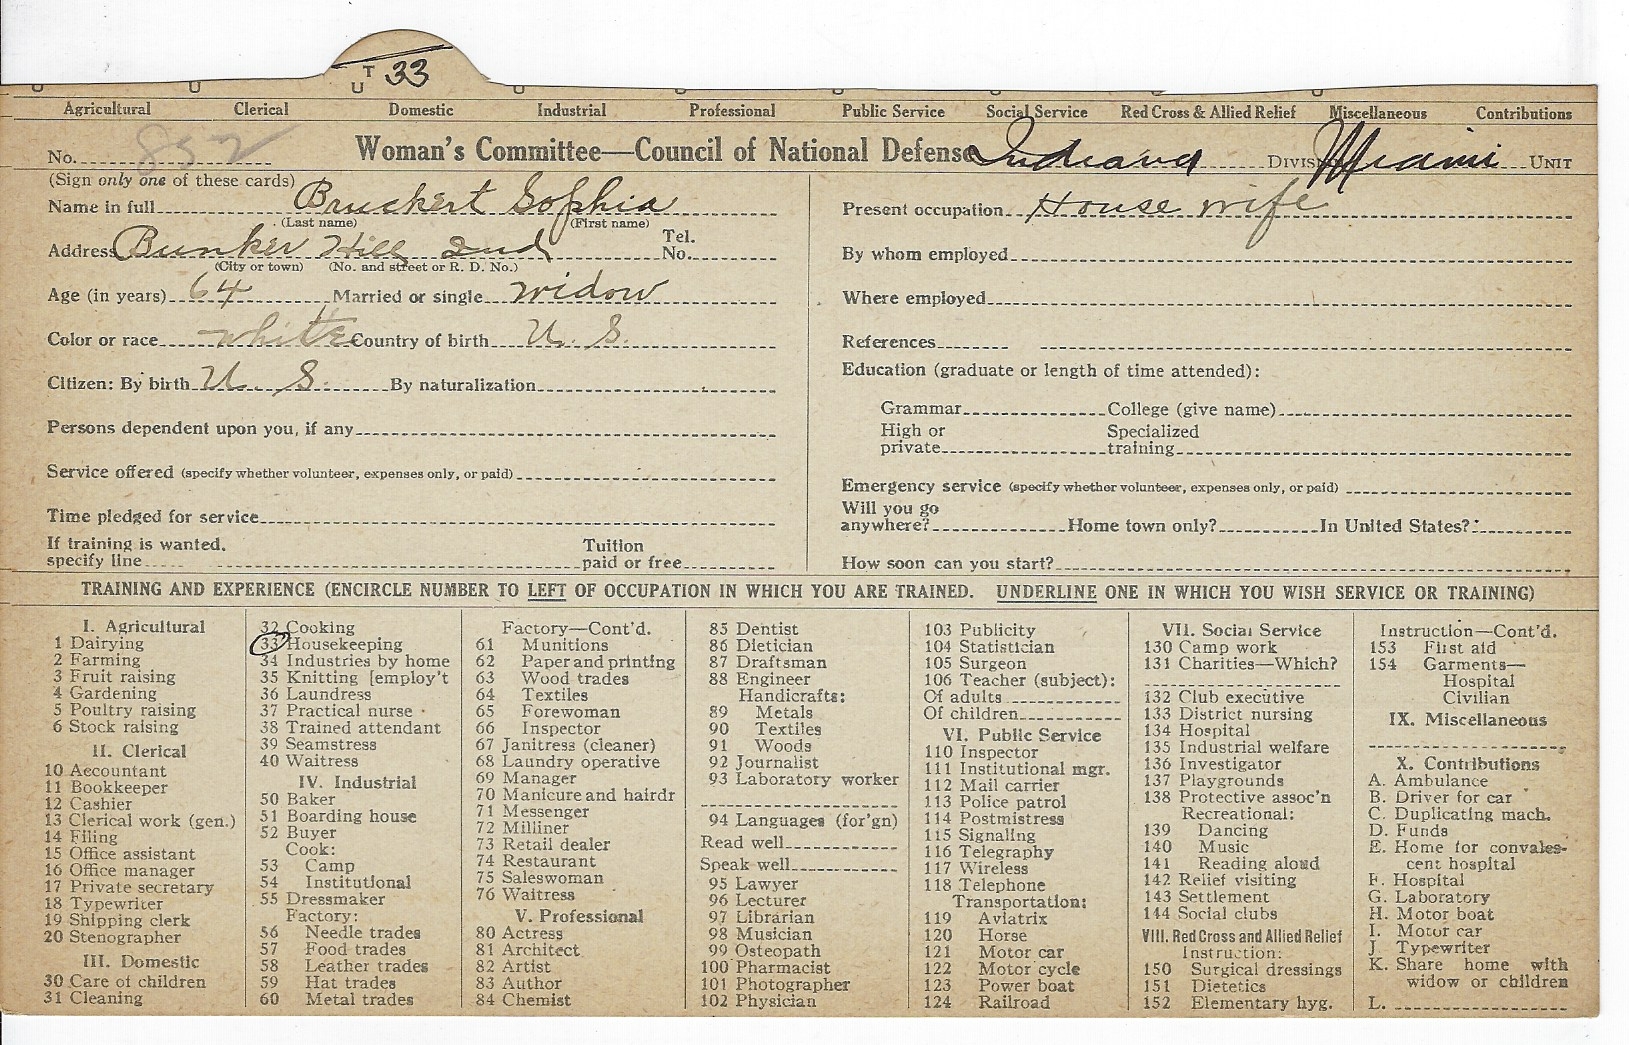 T 33
U
Agricultural Clerical Domestic Industrial Professional Public Service Social Service Red Cross & Allied Relief Miscellaneous Contributions
No. 852 Woman's Committee—Council of National Defense Indiana Division Miami Unit
(Sign only one of these cards)
Name in full Bruckert Sophia
(Last name) (First name)
Address Bunker Hill Ind Tel. No.
(City or town) (No. and street or R. D. No.)
Age (in years) 64 Married or single widow
Color or race white Country of birth U. S.
Citizen: By birth U. S. By naturalization
Persons dependent upon you, if any
Service offered (specify whether volunteer, expenses only, or paid)
Time pledged for service
If training is wanted, specify line Tuition paid or free
Present occupation House wife
By whom employed
Where employed
References
Education (graduate or length of time attended):
Grammar College (give name)
High or private Specialized training
Emergency service (specify whether volunteer, expenses only, or paid)
Will you go anywhere? Home town only? In United States?
How soon can you start?
TRAINING AND EXPERIENCE (ENCIRCLE NUMBER TO LEFT OF OCCUPATION IN WHICH YOU ARE TRAINED. UNDERLINE ONE IN WHICH YOU WISH SERVICE OR TRAINING)
I. Agricultural
1 Dairying
2 Farming
3 Fruit raising
4 Gardening
5 Poultry raising
6 Stock raising
II. Clerical
10 Accountant
11 Bookkeeper
12 Cashier
13 Clerical work (gen.)
14 Filing
15 Office assistant
16 Office manager
17 Private secretary
18 Typewriter
19 Shipping clerk
20 Stenographer
III. Domestic
30 Care of children
31 Cleaning
32 Cooking
33 Housekeeping
34 Industries by home
35 Knitting [employ't
36 Laundress
37 Practical nurse
38 Trained attendant
39 Seamstress
40 Waitress
IV. Industrial
50 Baker
51 Boarding house
52 Buyer
Cook:
53 Camp
54 Institutional
55 Dressmaker
Factory:
56 Needle trades
57 Food trades
58 Leather trades
59 Hat trades
60 Metal trades
Factory—Cont'd.
61 Munitions
62 Paper and printing
63 Wood trades
64 Textiles
65 Forewoman
66 Inspector
67 Janitress (cleaner)
68 Laundry operative
69 Manager
70 Manicure and hairdr
71 Messenger
72 Milliner
73 Retail dealer
74 Restaurant
75 Saleswoman
76 Waitress
V. Professional
80 Actress
81 Architect
82 Artist
83 Author
84 Chemist
85 Dentist
86 Dietician
87 Draftsman
88 Engineer
Handicrafts:
89 Metals
90 Textiles
91 Woods
92 Journalist
93 Laboratory worker
94 Languages (for'gn)
Read well
Speak well
95 Lawyer
96 Lecturer
97 Librarian
98 Musician
99 Osteopath
100 Pharmacist
101 Photographer
102 Physician
103 Publicity
104 Statistician
105 Surgeon
106 Teacher (subject):
Of adults
Of children
VI. Public Service
110 Inspector
111 Institutional mgr.
112 Mail carrier
113 Police patrol
114 Postmistress
115 Signaling
116 Telegraphy
117 Wireless
118 Telephone
Transportation:
119 Aviatrix
120 Horse
121 Motor car
122 Motor cycle
123 Power boat
124 Railroad
VII. Social Service
130 Camp work
131 Charities—Which?
132 Club executive
133 District nursing
134 Hospital
135 Industrial welfare
136 Investigator
137 Playgrounds
138 Protective assoc'n
Recreational:
139 Dancing
140 Music
141 Reading aloud
142 Relief visiting
143 Settlement
144 Social clubs
VIII. Red Cross and Allied Relief
Instruction:
150 Surgical dressings
151 Dietetics
152 Elementary hyg.
Instruction—Cont'd.
153 First aid
154 Garments—
Hospital
Civilian
IX. Miscellaneous
X. Contributions
A. Ambulance
B. Driver for car
C. Duplicating mach.
D. Funds
E. Home for convales-
cent hospital
F. Hospital
G. Laboratory
H. Motor boat
I. Motor car
J. Typewriter
K. Share home with
widow or children
L.